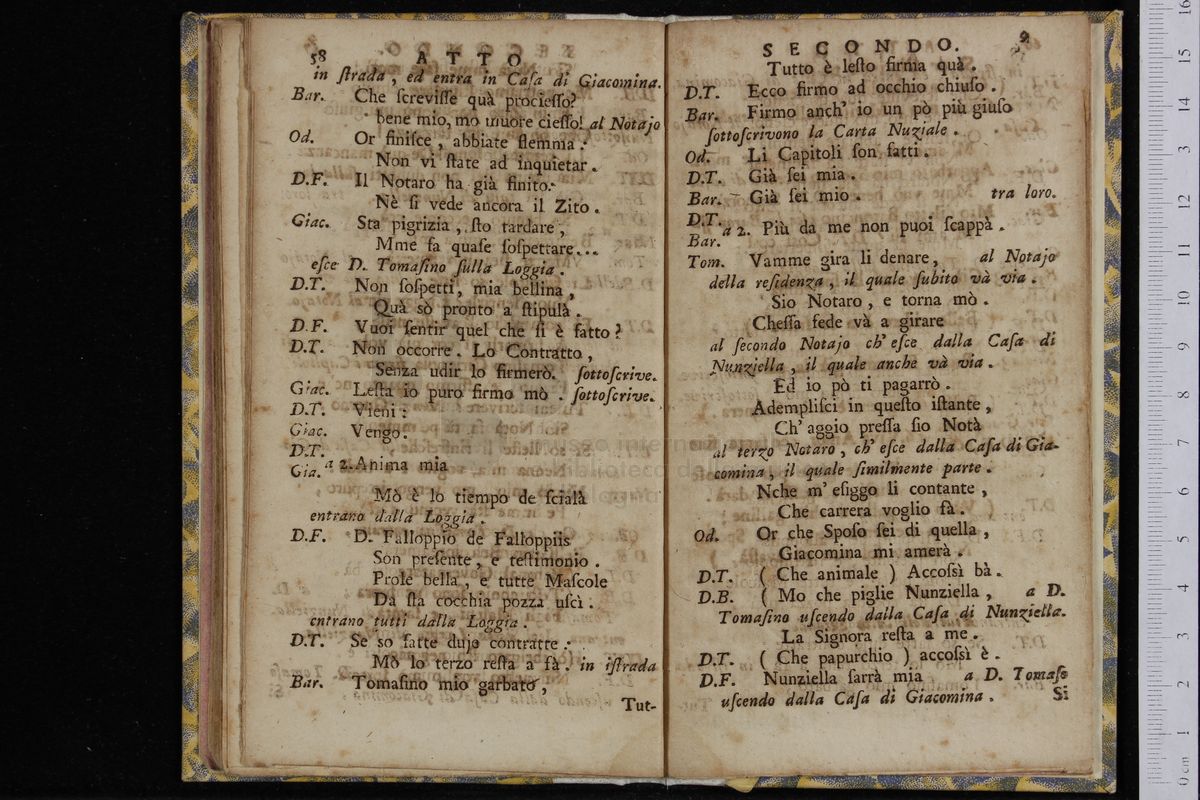 58 ATTO
in ſtrada, ed entra in Caſa di Giacomina.
Bar. Che ſcreviſſe quà procieſſo?
bene mio, mo muore cieſſo! al Notajo
Od. Or finiſce, abbiate flemma:
Non vi ſtate ad inquietar.
D.F. Il Notaro ha già finito:
Nè ſi vede ancora il Zito.
Giac. Sta pigrizia, ſto tardare,
Mme fa quaſe ſoſpettare...
eſce D. Tomaſino ſulla Loggia.
D.T. Non ſoſpetti, mia bellina,
Quà sò pronto a ſtipulà.
D.F. Vuoi ſentir quel che ſi è fatto?
D.T. Non occorre. Lo Contratto,
Senza udir lo firmerò. ſottoſcrive.
Giac. Leſta io puro firmo mò. ſottoſcrive.
D.T. Vieni:
Giac. Vengo.
D.T.
Gia. a 2. Anima mia
Mò è lo tiempo de ſcialà
entrano dalla Loggia.
D.F. D. Falloppio de Falloppiis
Son preſente, e teſtimonio.
Prole bella, e tutte Maſcole
Da ſta cocchia pozza uſcì.
entrano tutti dalla Loggia.
D.T. Se so fatte dujo contratte:
Mò lo terzo reſta a fà. in iſtrada
Bar. Tomaſino mio garbato,
Tut-
SECONDO.
Tutto è leſto firma quà.
D.T. Ecco firmo ad occhio chiuſo.
Bar. Firmo anch' io un pò più giuſo
ſottoſcrivono la Carta Nuziale.
Od. Li Capitoli ſon fatti.
D.T. Già ſei mia.
Bar. Già ſei mio. tra loro.
D.T.
Bar. a 2. Più da me non puoi ſcappà.
Tom. Vamme gira li denare, al Notajo
della reſidenza, il quale ſubito và via.
Sio Notaro, e torna mò.
Cheſſa fede và a girare
al ſecondo Notajo ch' eſce dalla Caſa di
Nunziella, il quale anche và via.
Ed io pò ti pagarrò.
Ademplifci in queſto iſtante,
Ch' aggio preſſa ſio Notà
al terzo Notaro, ch' eſce dalla Caſa di Gia-
comina, il quale ſimilmente parte.
Nche m' eſiggo li contante,
Che carrera voglio fà.
Od. Or che Spoſo ſei di quella,
Giacomina mi amerà.
D.T. ( Che animale ) Accoſsì bà.
D.B. ( Mo che piglie Nunziella, a D.
Tomaſino uſcendo dalla Caſa di Nunziella.
La Signora reſta a me.
D.T. ( Che papurchio ) accoſsì è.
D.F. Nunziella ſarrà mia a D. Tomaſo
uſcendo dalla Caſa di Giacomina.
Si